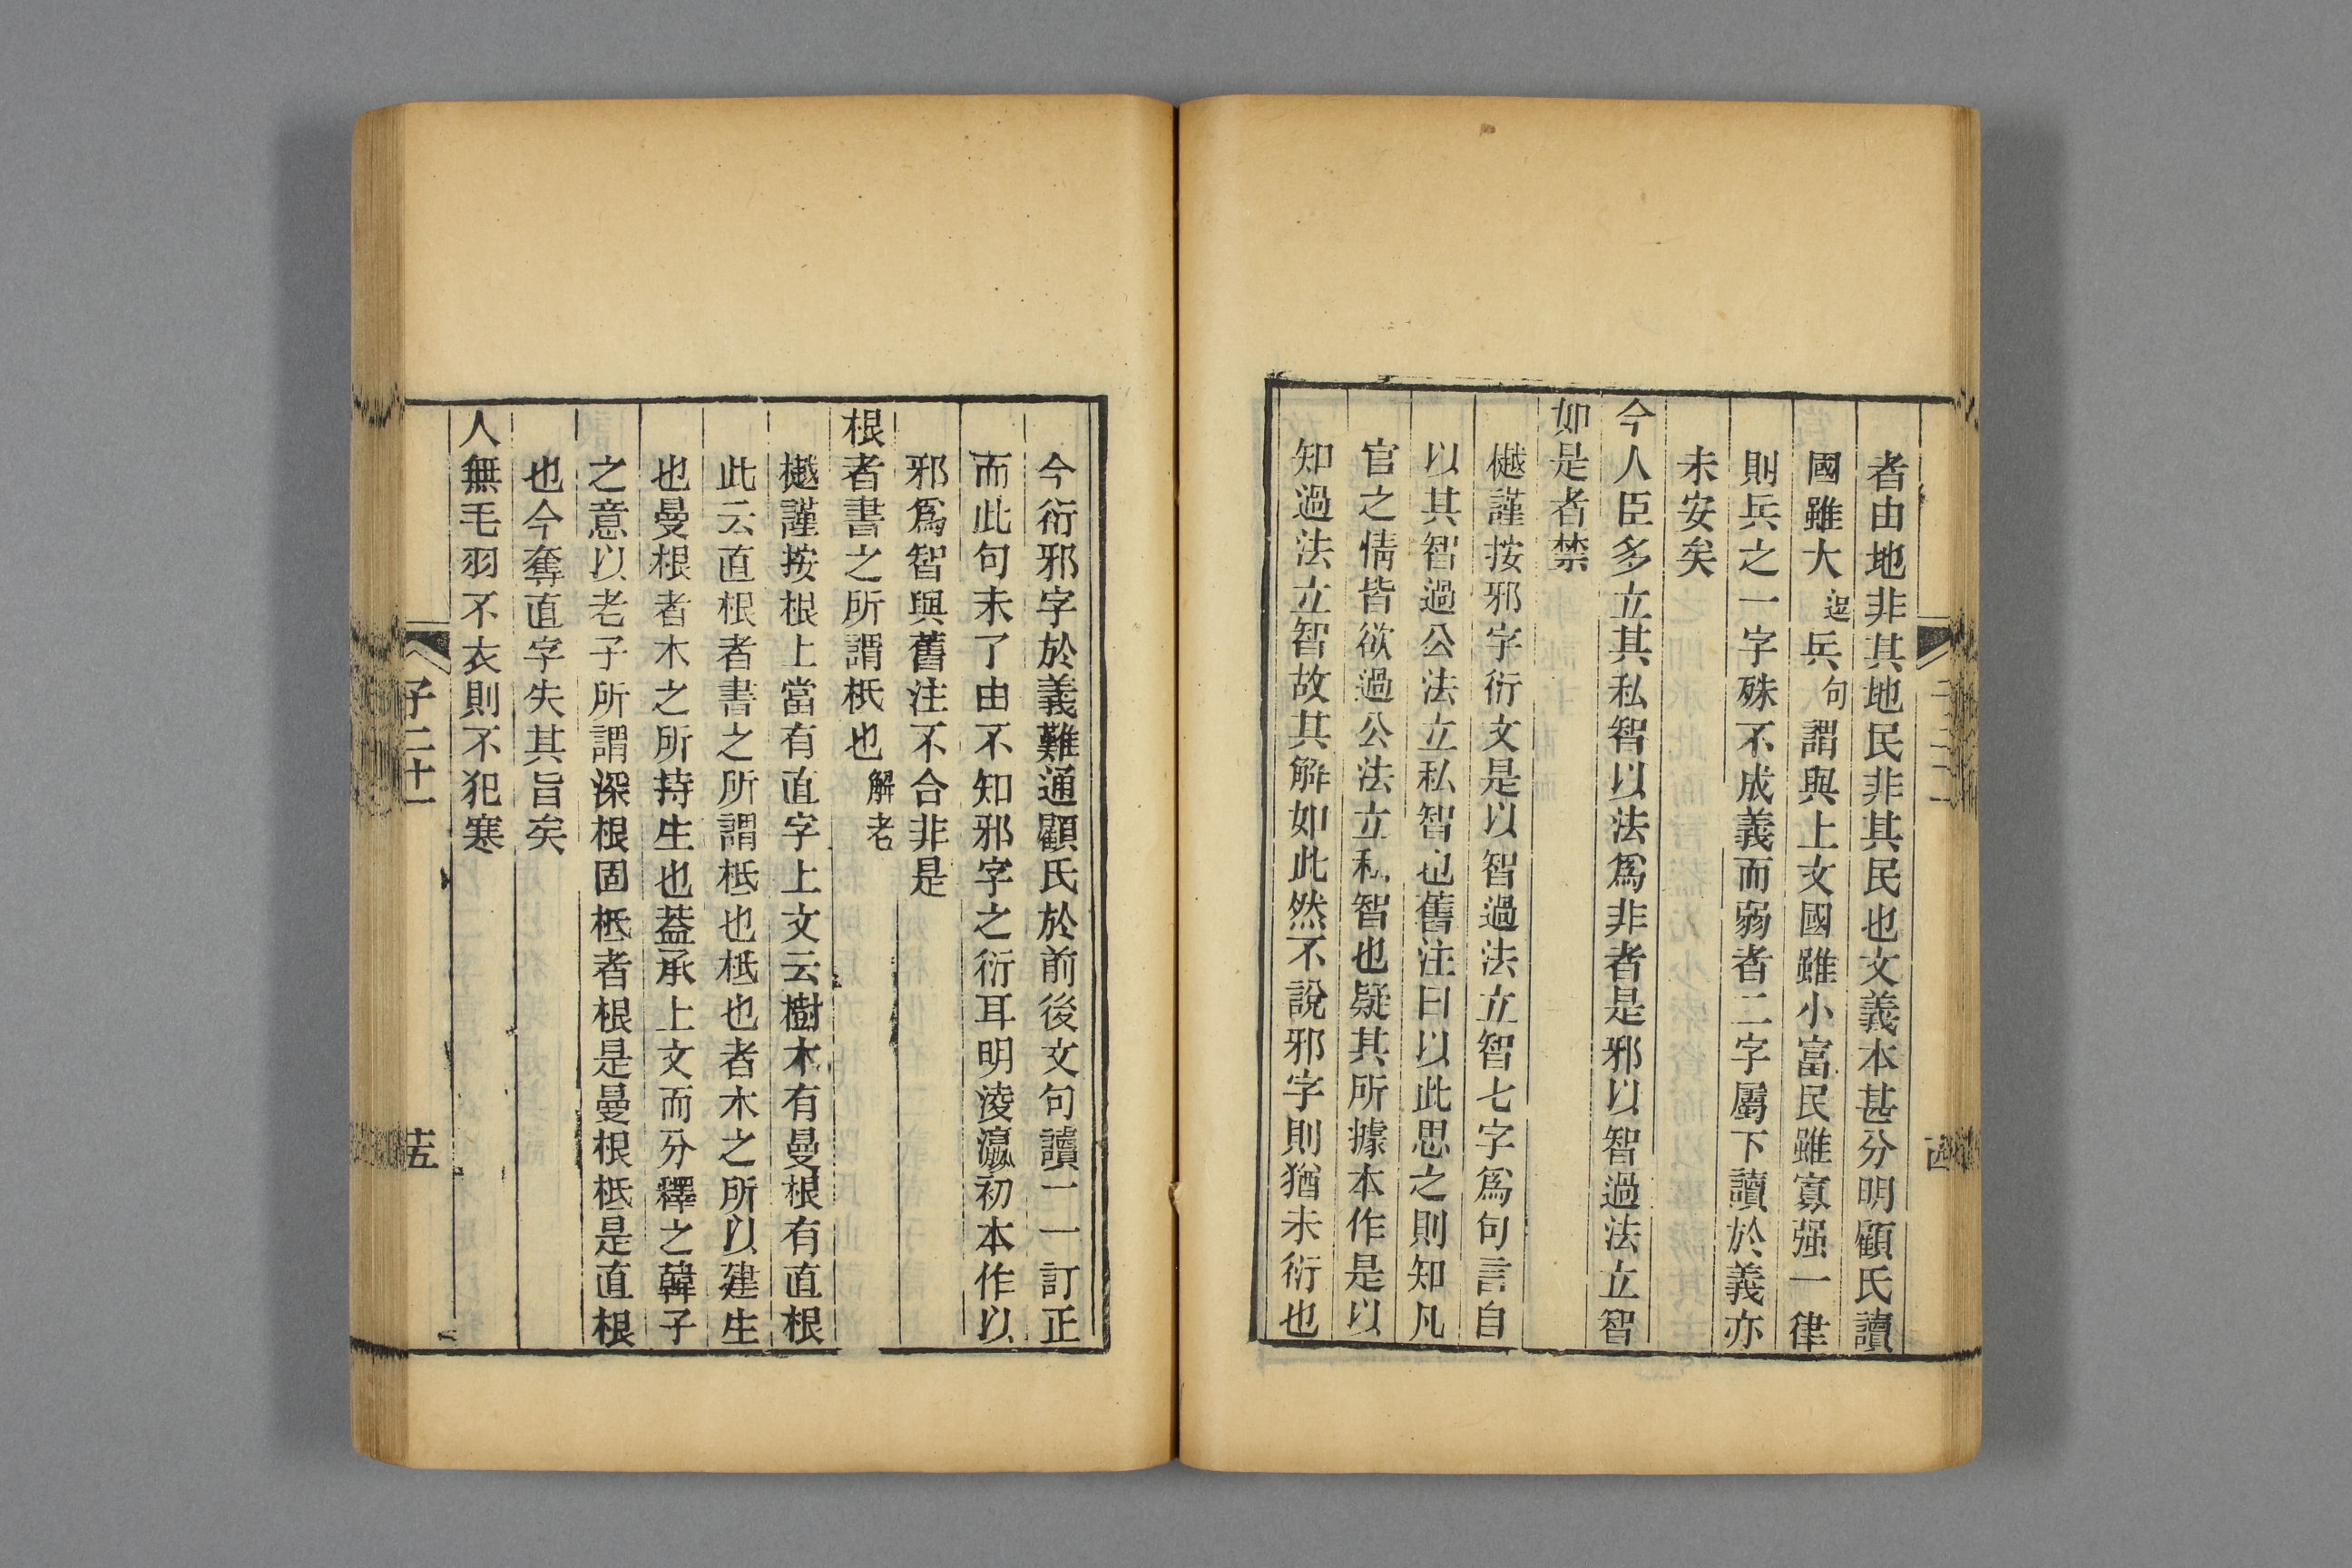 者由地非其地民非其民也文義本甚分明顧氏讀
國雖大逗兵句謂與上文國雖小富民雖寡强一律
則兵之一字殊不成義而弱者二字屬下讀於義亦
未安矣
今人臣多立其私智以法爲非者是邪以智過法立智
如是者禁
樾謹按邪字衍文是以智過法立智七字爲句言自
以其智過公法立私智也舊注曰以此思之則知凡
官之情皆欲過公法立私智也疑其所據本作是以
知過法立智故其解如此然不說邪字則猶未衍也
今衍邪字於義難通顧氏於前後文句讀一一訂正
而此句未了由不知邪字之衍耳明淩瀛初本作以
邪爲智與舊注不合非是
根者書之所謂柢也解老
樾謹按根上當有直字上文云樹木有曼根有直根
此云直根者書之所謂柢也柢也者木之所以建生
也曼根者木之所持生也葢承上文而分釋之韓子
之意以老子所謂深根固柢者根是曼根柢是直根
也今奪直字失其旨矣
人無毛羽不衣則不犯寒
子二十一
十五